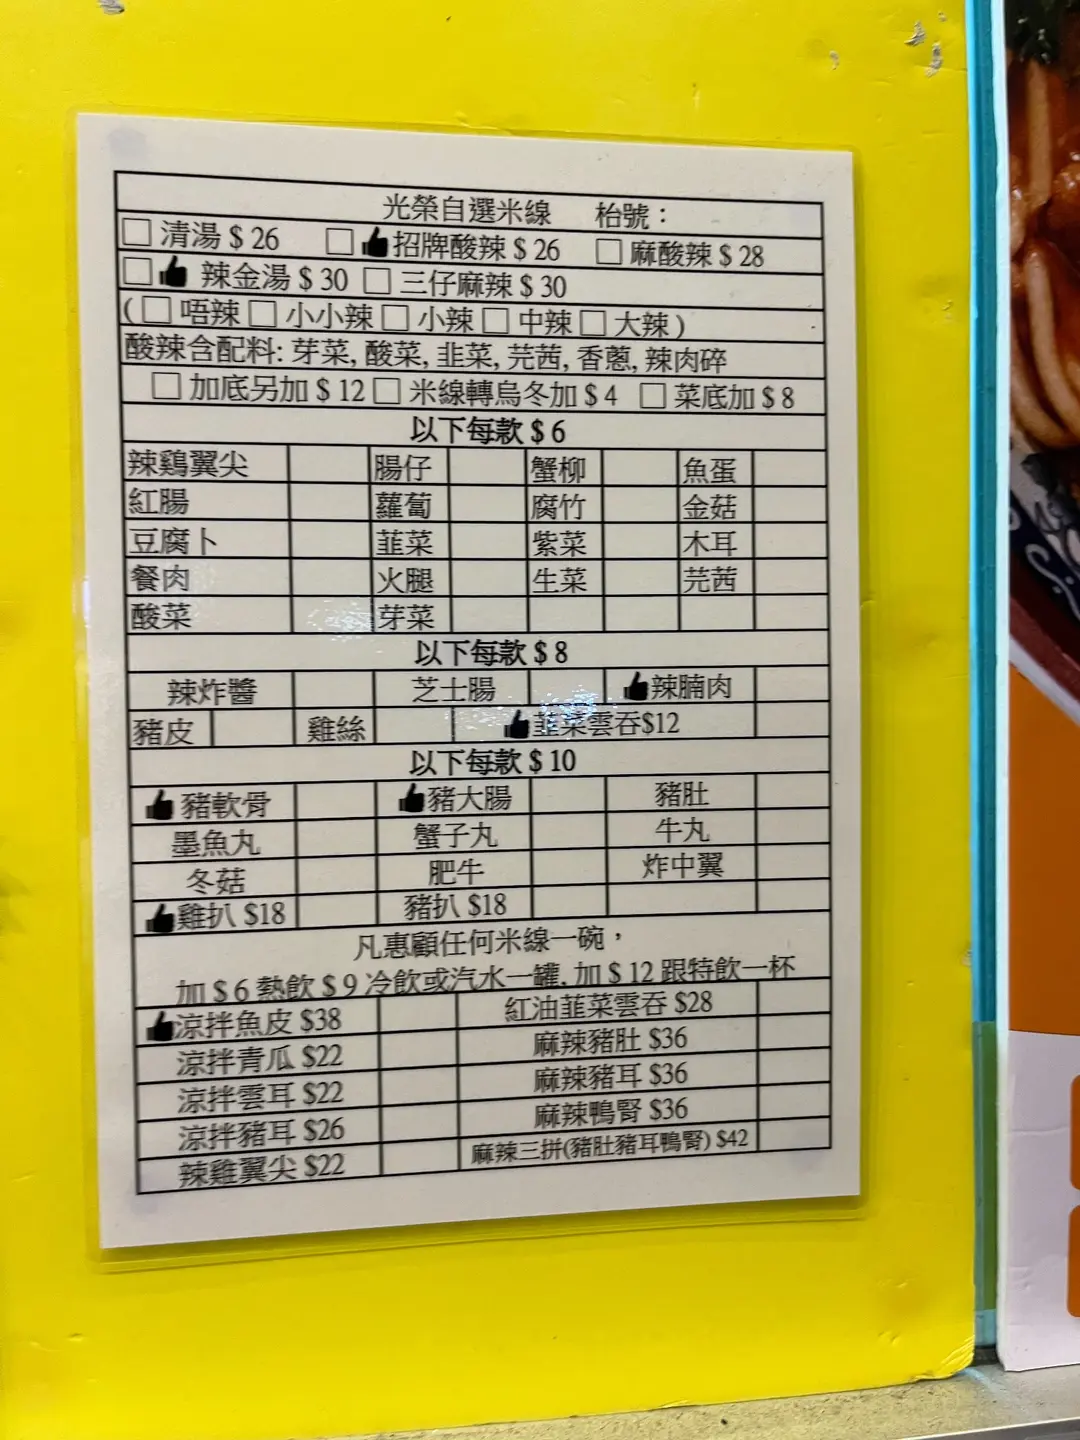 光榮自選米線 枱號：
□ 清湯 $ 26 □ 👍招牌酸辣 $ 26 □ 麻酸辣 $ 28
□ 👍 辣金湯 $ 30 □ 三仔麻辣 $ 30
( □ 唔辣 □ 小小辣 □ 小辣 □ 中辣 □ 大辣 )
酸辣含配料: 芽菜, 酸菜, 韭菜, 芫茜, 香蔥, 辣肉碎
□ 加底另加 $ 12 □ 米線轉烏冬加 $ 4 □ 菜底加 $ 8
以下每款 $ 6
辣鷄翼尖 腸仔 蟹柳 魚蛋
紅腸 蘿蔔 腐竹 金菇
豆腐卜 韮菜 紫菜 木耳
餐肉 火腿 生菜 芫茜
酸菜 芽菜
以下每款 $ 8
辣炸醬 芝士腸 👍辣腩肉
豬皮 雞絲 👍韮菜雲吞$12
以下每款 $ 10
👍豬軟骨 👍豬大腸 豬肚
墨魚丸 蟹子丸 牛丸
冬菇 肥牛 炸中翼
👍雞扒 $18 豬扒 $18
凡惠顧任何米線一碗，
加 $ 6 熱飲 $ 9 冷飲或汽水一罐, 加 $ 12 跟特飲一杯
👍涼拌魚皮 $38 紅油韮菜雲吞 $28
涼拌青瓜 $22 麻辣豬肚 $36
涼拌雲耳 $22 麻辣豬耳 $36
涼拌豬耳 $26 麻辣鴨腎 $36
辣雞翼尖 $22 麻辣三拼(豬肚豬耳鴨腎) $42